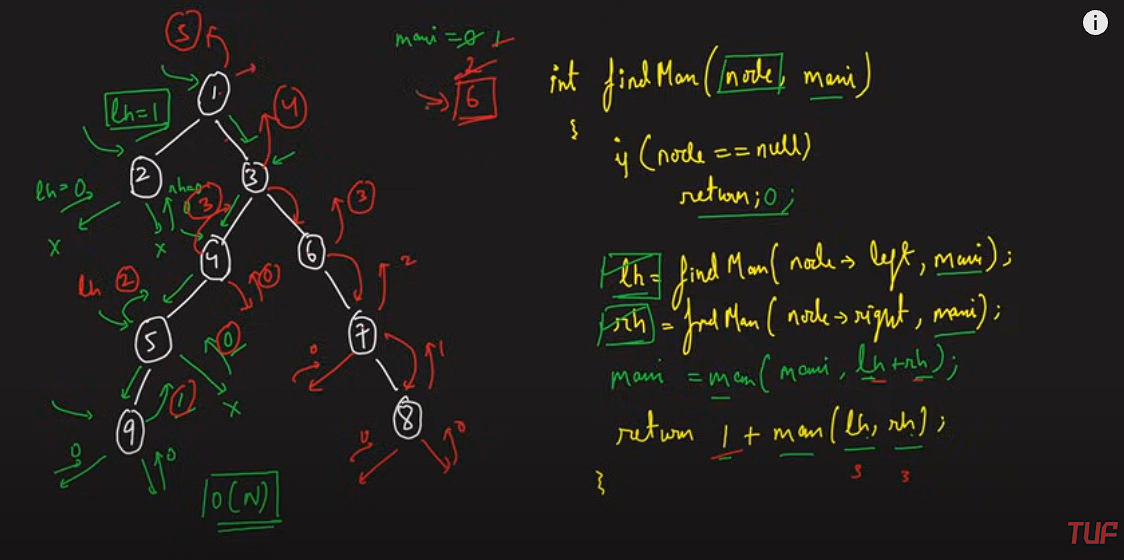 5
maxi = 0 1
2
6
1
lh=1
4
2
3
lh=0
rh=0
3
3
x
x
4
6
lh 2
0
2
5
0
7
0
1
1
x
9
8
0
0
0
0
O(N)
int findMax(node, maxi)
{
if (node == null)
return; 0;
lh = findMax(node→left, maxi);
rh = findMax(node→right, maxi);
maxi = max(maxi, lh+rh);
return 1 + max(lh, rh);
3 3
}
TUF
i